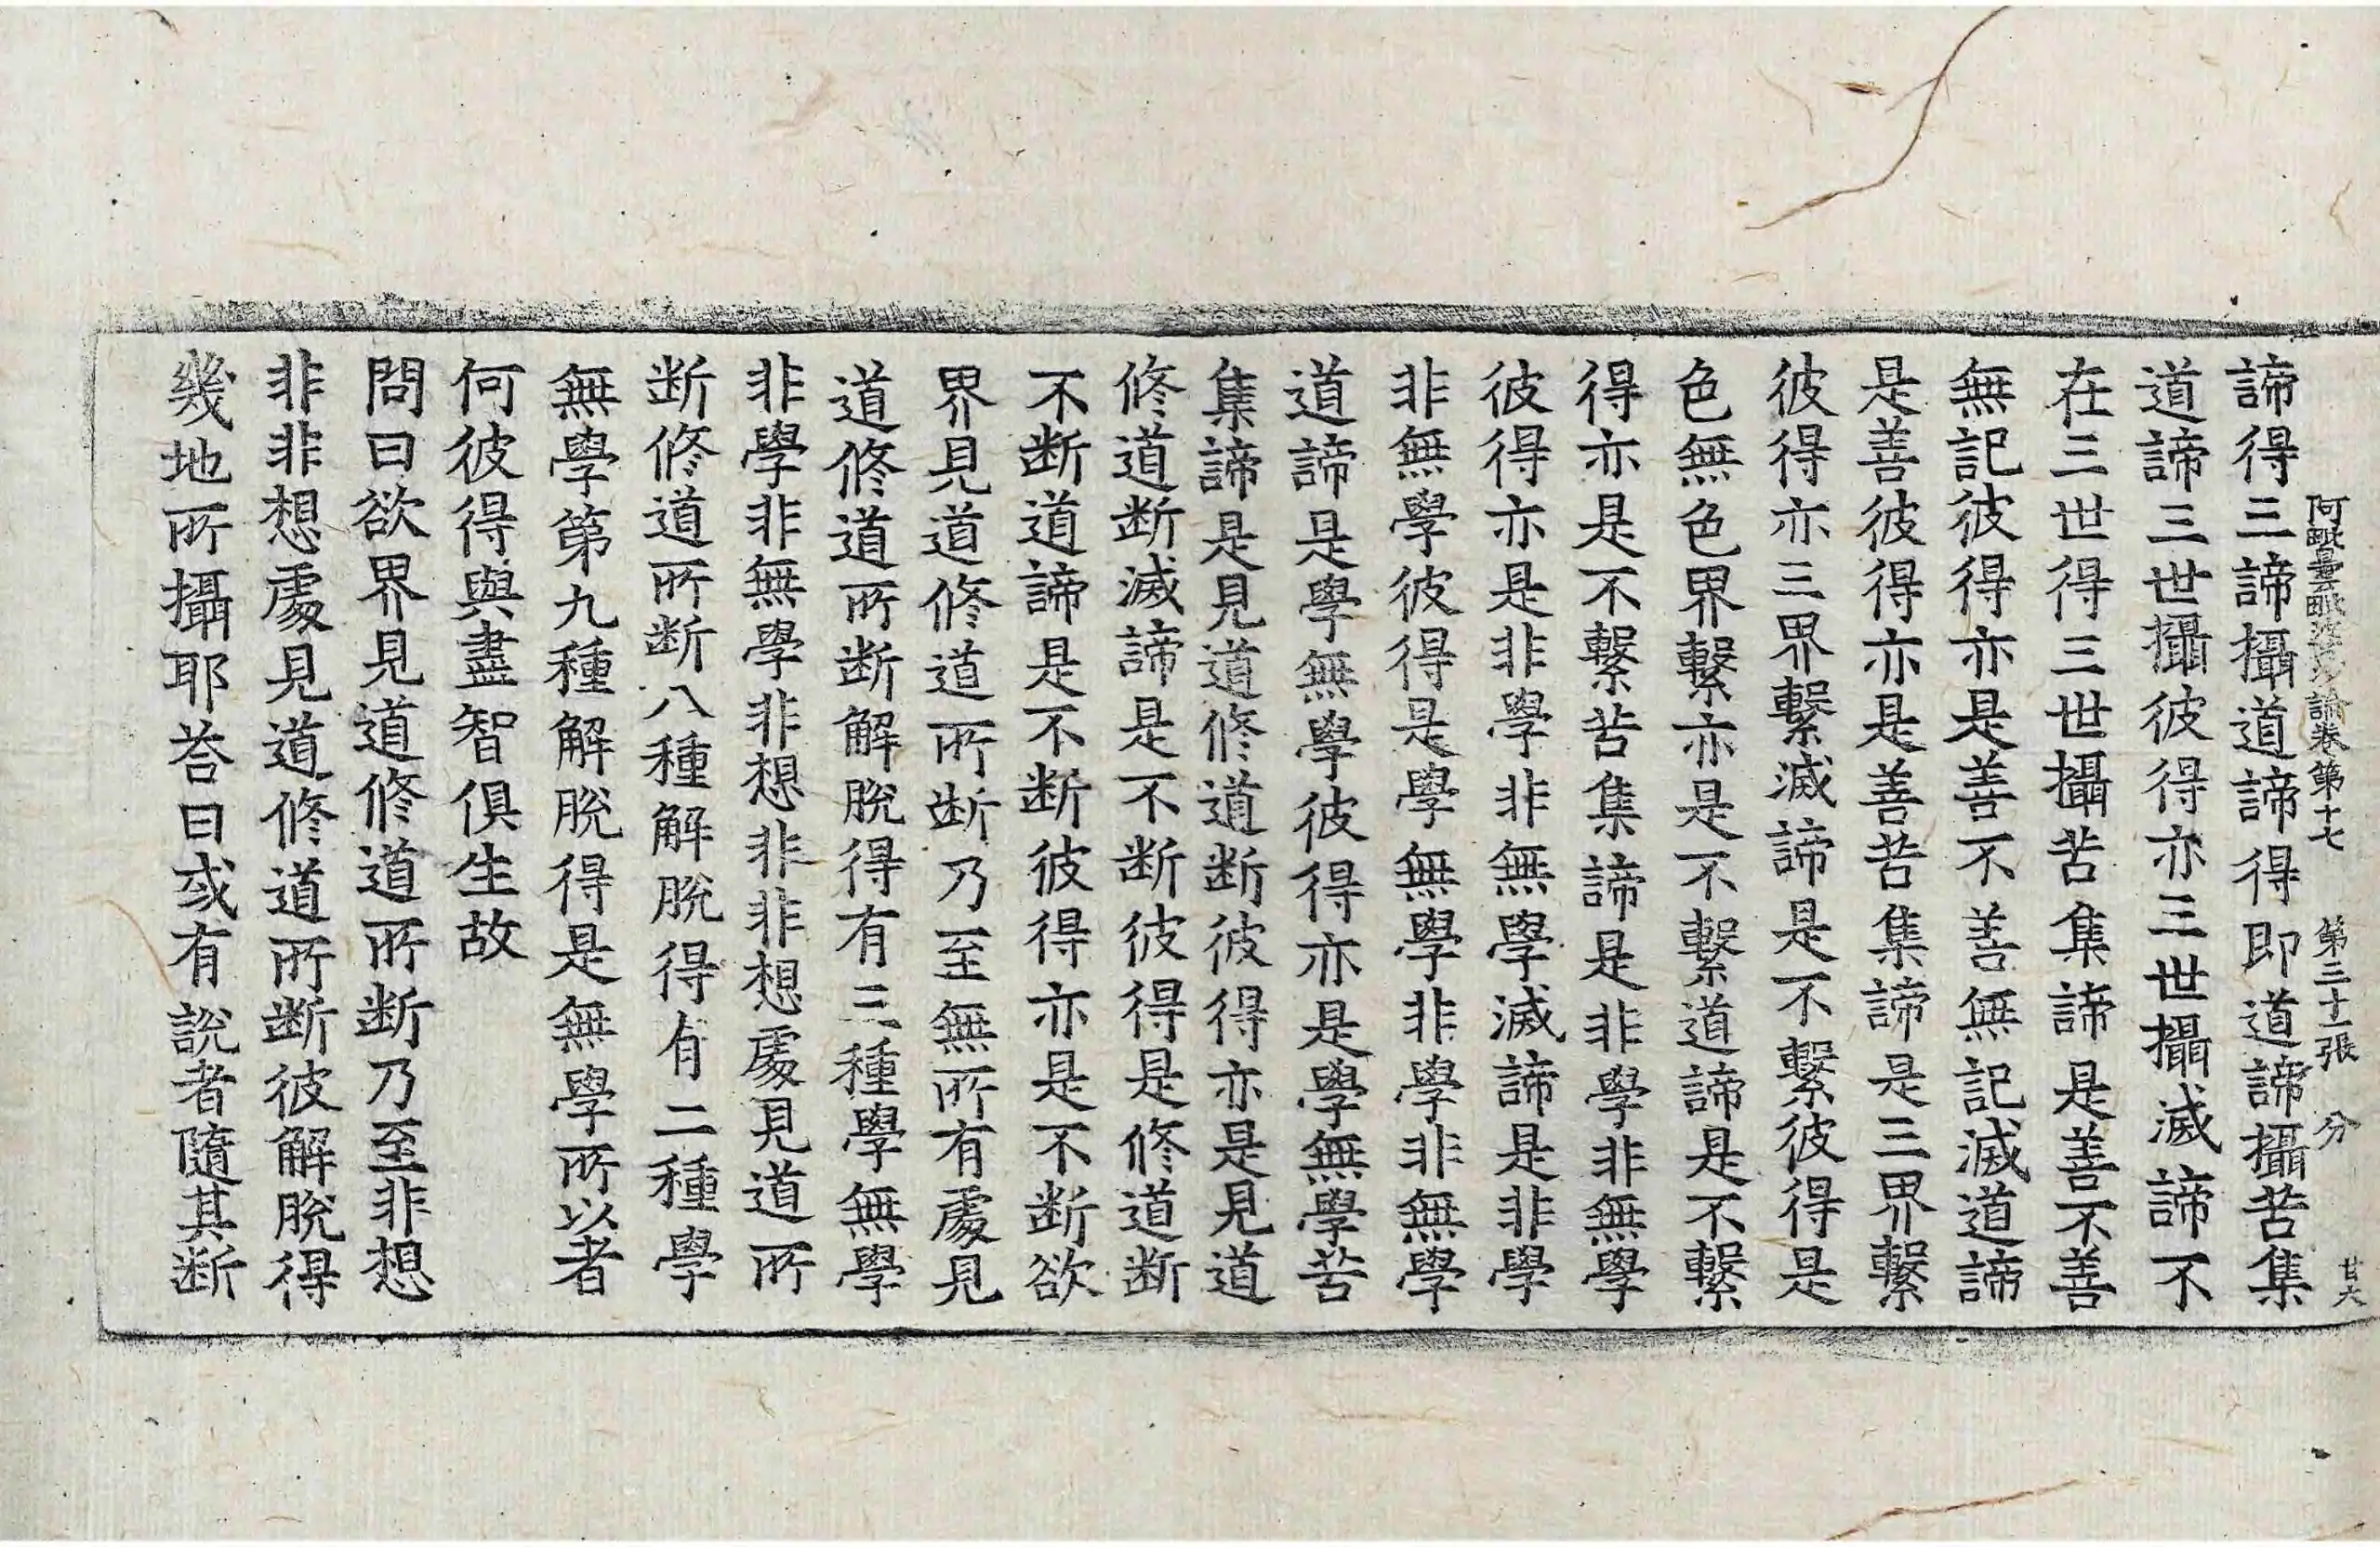 阿毗曇毗婆沙論卷第十七 第三十一張 分 廿六
諦得三諦攝道諦得即道諦攝苦集
道諦三世攝彼得亦三世攝滅諦不
在三世得三世攝苦集諦是善不善
無記彼得亦是善不善無記滅道諦
是善彼得亦是善苦集諦是三界繫
彼得亦三界繫滅諦是不繫彼得是
色無色界繫亦是不繫道諦是不繫
得亦是不繫苦集諦是非學非無學
彼得亦是非學非無學滅諦是非學
非無學彼得是學無學非學非無學
道諦是學無學彼得亦是學無學苦
集諦是見道修道断彼得亦是見道
修道断滅諦是不断彼得是修道断
不断道諦是不断彼得亦是不断欲
界見道修道所断乃至無所有處見
道修道所断解脫得有三種學無學
非學非無學非想非非想處見道所
断修道所断八種解脫得有二種學
無學第九種解脫得是無學所以者
何彼得與盡智俱生故
問曰欲界見道修道所断乃至非想
非非想處見道修道所断彼解脫得
幾地所攝耶荅曰或有說者隨其断